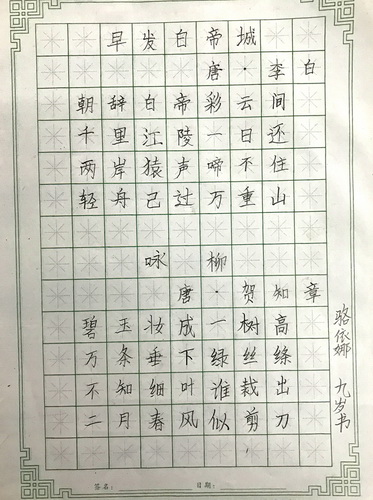 早发白帝城
唐·李白
朝辞白帝彩云间
千里江陵一日还
两岸猿声啼不住
轻舟己过万重山
咏柳
唐·贺知章
碧玉妆成一树高
万条垂下绿丝绦
不知细叶谁裁出
二月春风似剪刀
骆依娜 九岁书
签名： 日期：